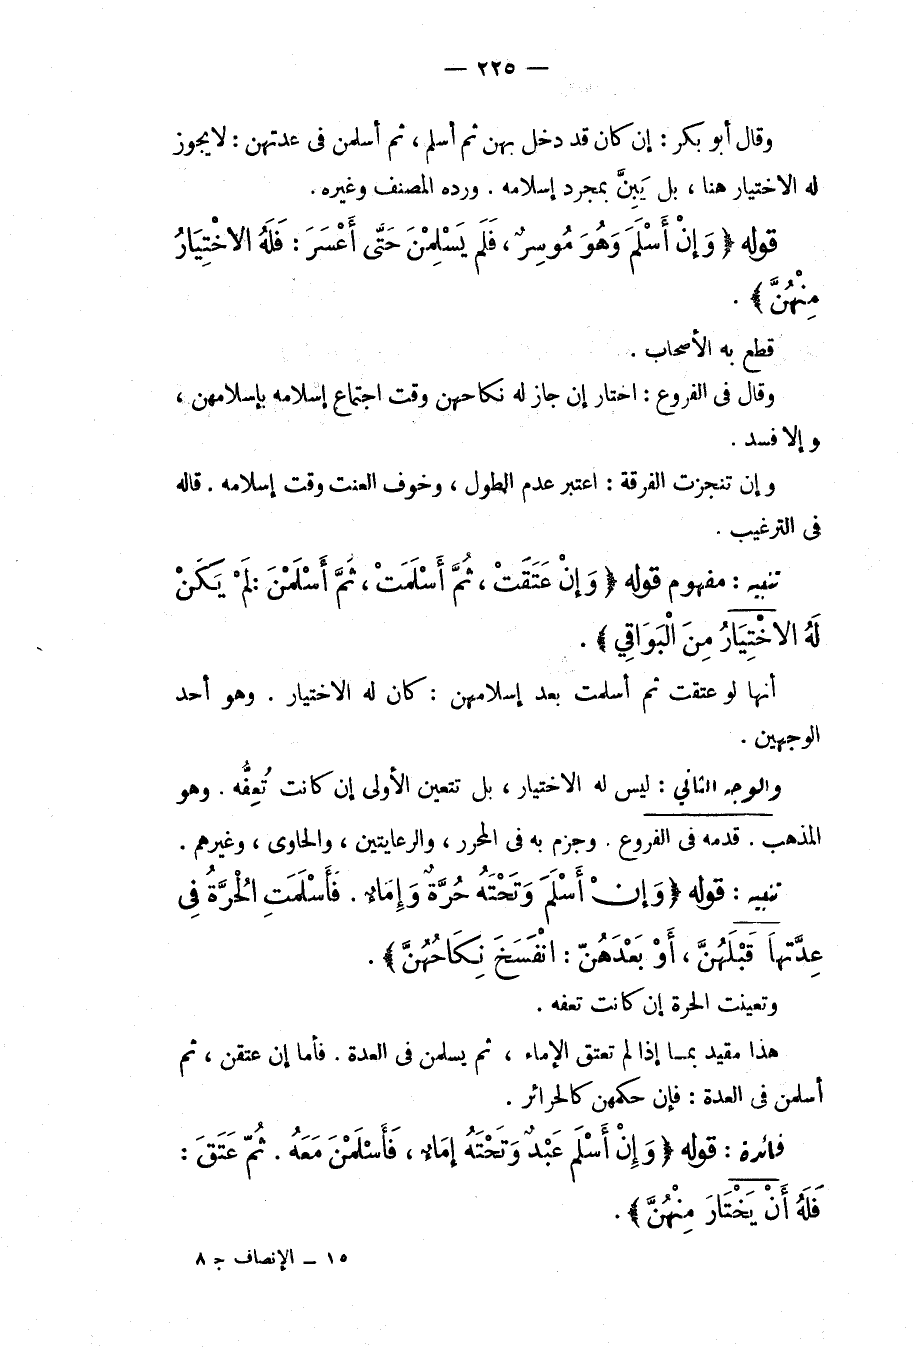 — ٢٢٥ —
وقال أبو بكر : إن كان قد دخل بهن ثم أسلم ، ثم أسلمن فى عدتهن : لا يجوز
له الاختيار هنا ، بل يَبِنَّ بمجرد إسلامه . ورده المصنف وغيره .
قوله ﴿ وَإِنْ أَسْلَمَ وَهُوَ مُوسِرٌ ، فَلَم يَسْلِمْنَ حَتَّى أَعْسَرَ : فَلَهُ الاخْتِيَارُ
مِنْهُنَّ ﴾ .
قطع به الأصحاب .
وقال فى الفروع : اختار إن جاز له نكاحهن وقت اجتماع إسلامه بإسلامهن ،
وإلا فسد .
وإن تنجزت الفرقة : اعتبر عدم الطول ، وخوف العنت وقت إسلامه . قاله
فى الترغيب .
تنبيه : مفهوم قوله ﴿ وَإِنْ عَتَقَتْ ، ثُمَّ أَسْلَمَتْ ، ثُمَّ أَسْلَمْنَ : لَمْ يَكَنْ
لَهُ الاخْتِيَارُ مِنَ الْبَوَاقِي ﴾ .
أنها لو عتقت ثم أسلمت بعد إسلامهن : كان له الاختيار . وهو أحد
الوجهين .
والوجه الثاني : ليس له الاختيار ، بل تتعين الأولى إن كانت تُعِفُّه . وهو
المذهب . قدمه فى الفروع . وجزم به فى المحرر ، والرعايتين ، والحاوى ، وغيرهم .
تنبيه : قوله ﴿ وَإِنْ أَسْلَمَ وَتَحْتَهُ حُرَّةٌ وَإِمَاءٌ . فَأَسْلَمَتِ الْحُرَّةُ فِى
عِدَّتِهاَ قَبْلَهُنَّ ، أَوْ بَعْدَهُنّ : انْفَسَخَ نِكَاحُهُنَّ ﴾ .
وتعينت الحرة إن كانت تعفه .
هذا مقيد بما إذا لم تعتق الإماء ، ثم يسلمن فى العدة . فأما إن عتقن ، ثم
أسلمن فى العدة : فإن حكمهن كالحرائر .
فائدة : قوله ﴿ وَإِنْ أَسْلَم عَبْدٌ وَتَحْتَهُ إِمَاءٌ ، فَأَسْلَمْنَ مَعَهُ . ثُمّ عَتَقَ :
فَلَهُ أَنْ يَخْتَارَ مِنْهُنَّ ﴾ .
١٥ — الإنصاف ج ٨